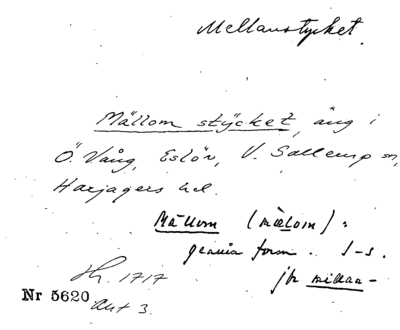 Mellanstycket.
Mällom stÿcket, äng i
Ö. Vång, Eslöv, V. Sallerup sn,
Harjagers hd.
Mällom (mælom) =
genuin form. I-s.
jfr mellan-
Hr. 1717
Nr 5620
Akt 3.